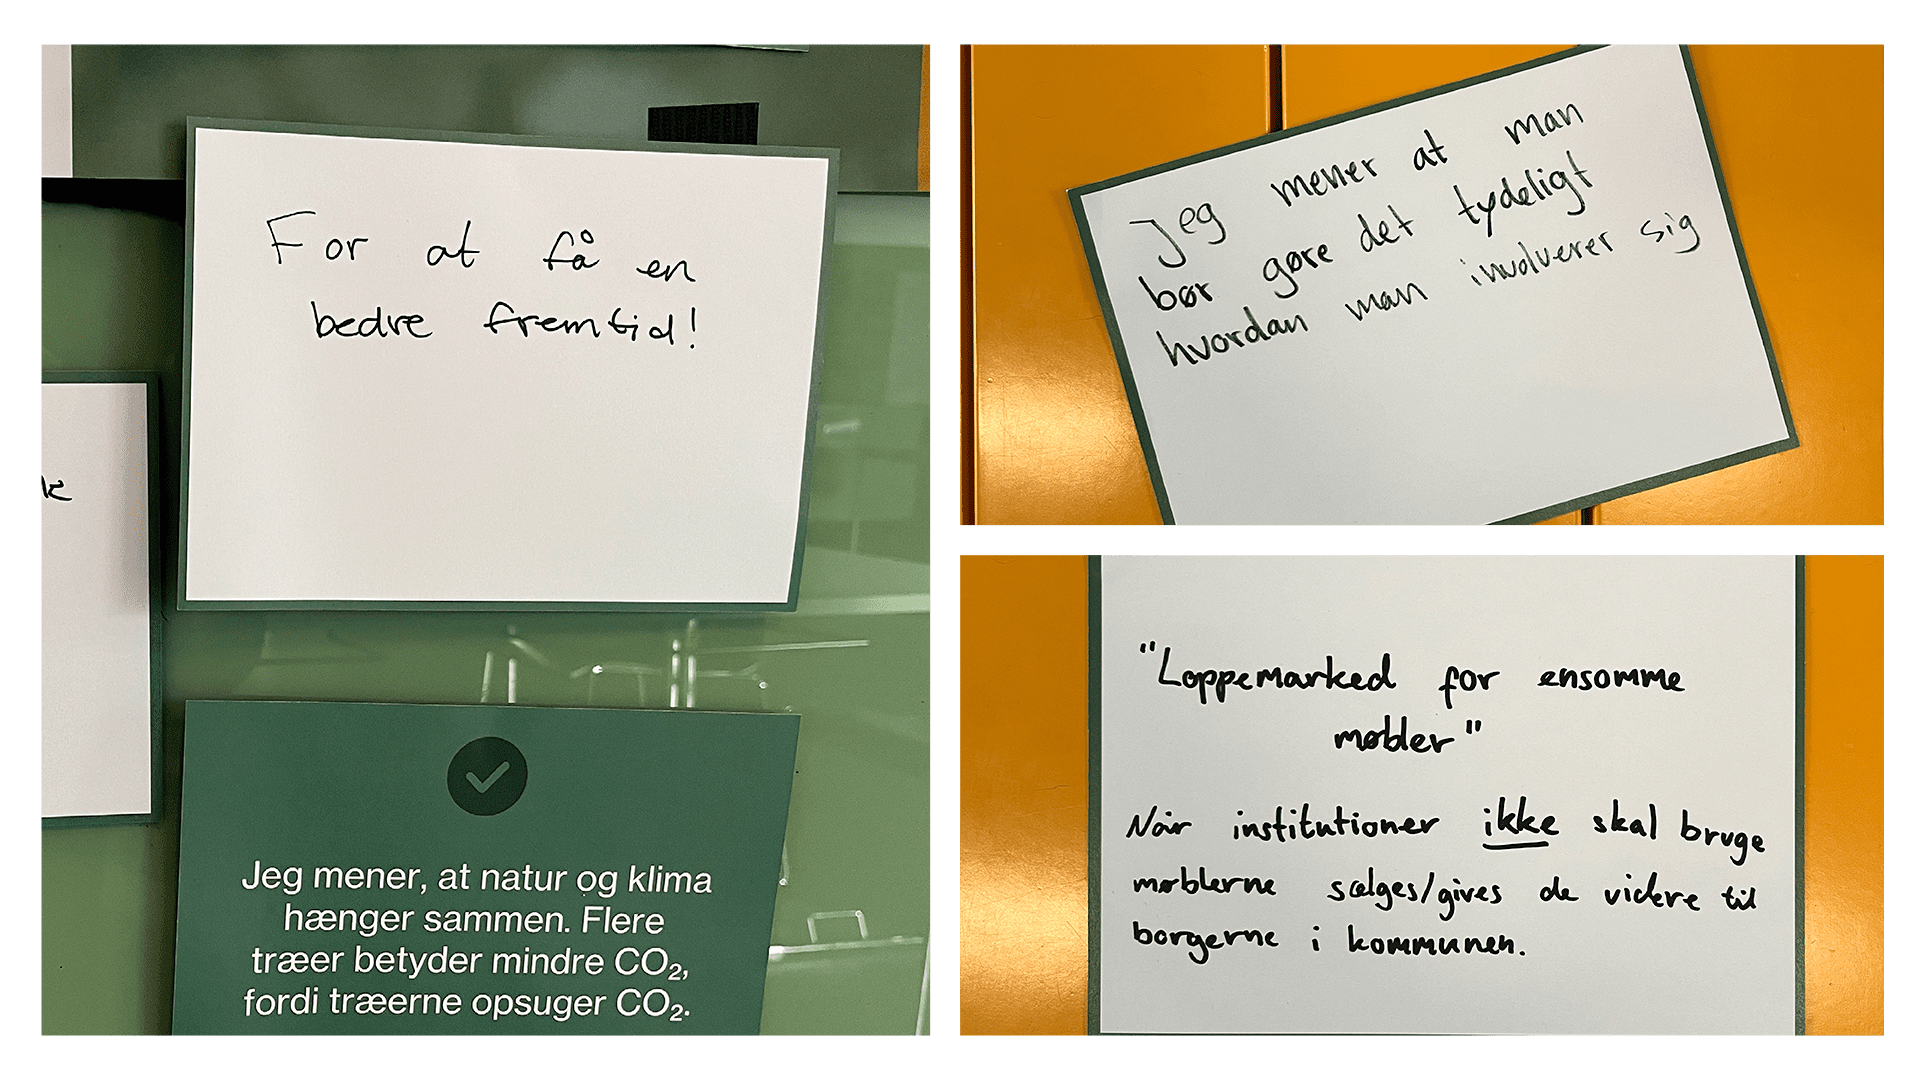 For at få en
bedre fremtid!
Jeg mener, at natur og klima
hænger sammen. Flere
træer betyder mindre CO₂,
fordi træerne opsuger CO₂.
Jeg mener at man
bør gøre det tydeligt
hvordan man involverer sig
"Loppemarked for ensomme
møbler"
Når institutioner ikke skal bruge
møblerne sælges/gives de videre til
borgerne i kommunen.